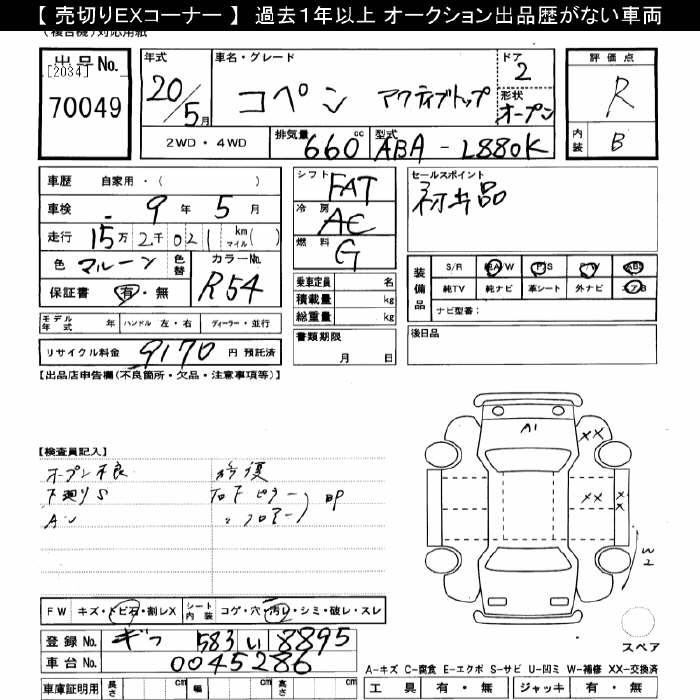 【 売切りEXコーナー 】 過去1年以上 オークション出品歴がない車両
(複合機)対応用紙
出品No.
[2034]
70049
年式
20/5月
車名・グレード
コペン アクティブトップ
ドア
2
形状
オープン
評価点
R
内装
B
2WD・4WD
排気量
660 cc
型式
ABA - L880K
車歴 自家用・( )
車検 9 年 5 月
走行 15万 2千 021 km マイル( )
色 マルーン 色替 カラーNo. R54
保証書 有・無
シフト FAT
冷房 AC
燃料 G
乗車定員 名
積載量 kg
総重量 kg
書類期限
月 日
セールスポイント
初出品
装備品
S/R A/W P/S P/W ABS
純TV 純ナビ 革シート 外ナビ エアB
ナビ型番:
後日品
モデル年式 年 ハンドル 左・右 ディーラー・並行
リサイクル料金 9170 円 預託済
【出品店申告欄(不良箇所・欠品・注意事項等)】
【検査員記入】
オープン不良 修復
下廻りS 右下ピラー
〃 フロアー
A1
XX
XX
XX
W2
FW キズ・トビ石・割レX シート内装 コゲ・穴・汚レ・シミ・破レ・スレ
登録No. ギフ 583 い 8895
車台No. 0045286
スペア
A-キズ C-腐食 E-エクボ S-サビ U-凹ミ W-補修 XX-交換済
車庫証明用 長さ cm 幅 cm 高さ cm
工具 有・無 ジャッキ 有・無